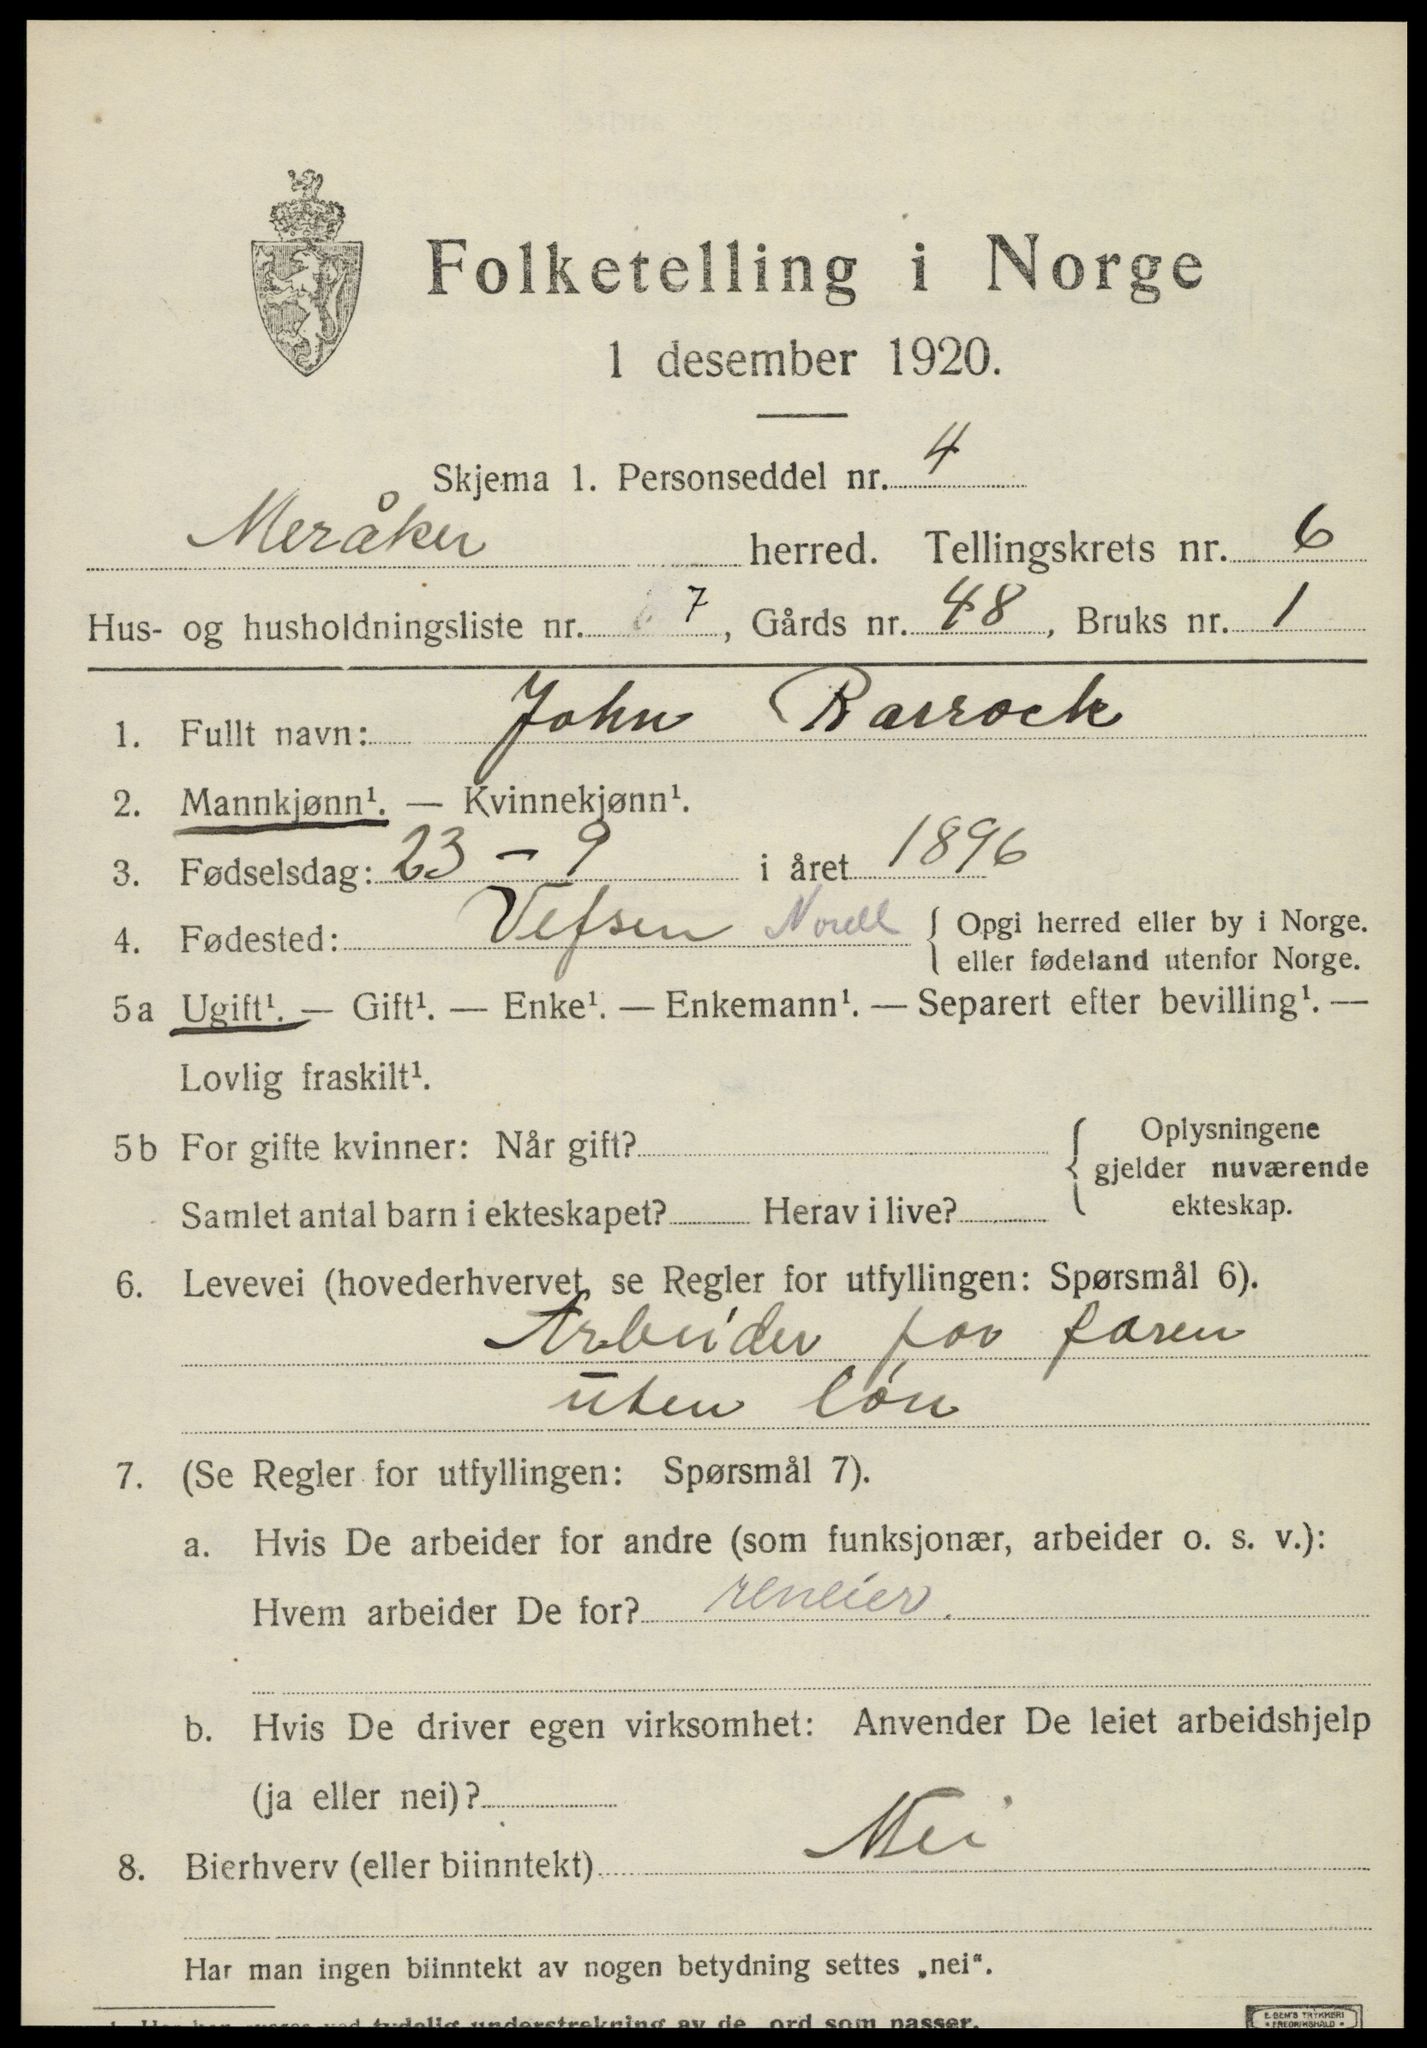 Folketelling i Norge
1 desember 1920.
Skjema 1. Personseddel nr. 4
Meråker herred. Tellingskrets nr. 6
Hus- og husholdningsliste nr. 7, Gårds nr. 48, Bruks nr. 1
1. Fullt navn: John Barrock
2. Mannkjønn¹. — Kvinnekjønn¹.
3. Fødselsdag: 23 - 9 i året 1896
4. Fødested: Vefsen Nordl { Opgi herred eller by i Norge.
eller fødeland utenfor Norge.
5a Ugift¹. — Gift¹. — Enke¹. — Enkemann¹. — Separert efter bevilling¹. —
Lovlig fraskilt¹.
5b For gifte kvinner: Når gift? { Oplysningene
gjelder nuværende
ekteskap.
Samlet antal barn i ekteskapet? Herav i live?
6. Levevei (hovederhvervet, se Regler for utfyllingen: Spørsmål 6).
Arbeider for faren
uten løn
7. (Se Regler for utfyllingen: Spørsmål 7).
a. Hvis De arbeider for andre (som funksjonær, arbeider o. s. v.):
Hvem arbeider De for? reneier.
b. Hvis De driver egen virksomhet: Anvender De leiet arbeidshjelp
(ja eller nei)?
8. Bierhverv (eller biinntekt) Nei
Har man ingen biinntekt av nogen betydning settes „nei“.
tydelig understrekning av de ord som passer.
E. SEM'S TRYKKERI
FREDRIKSHALD